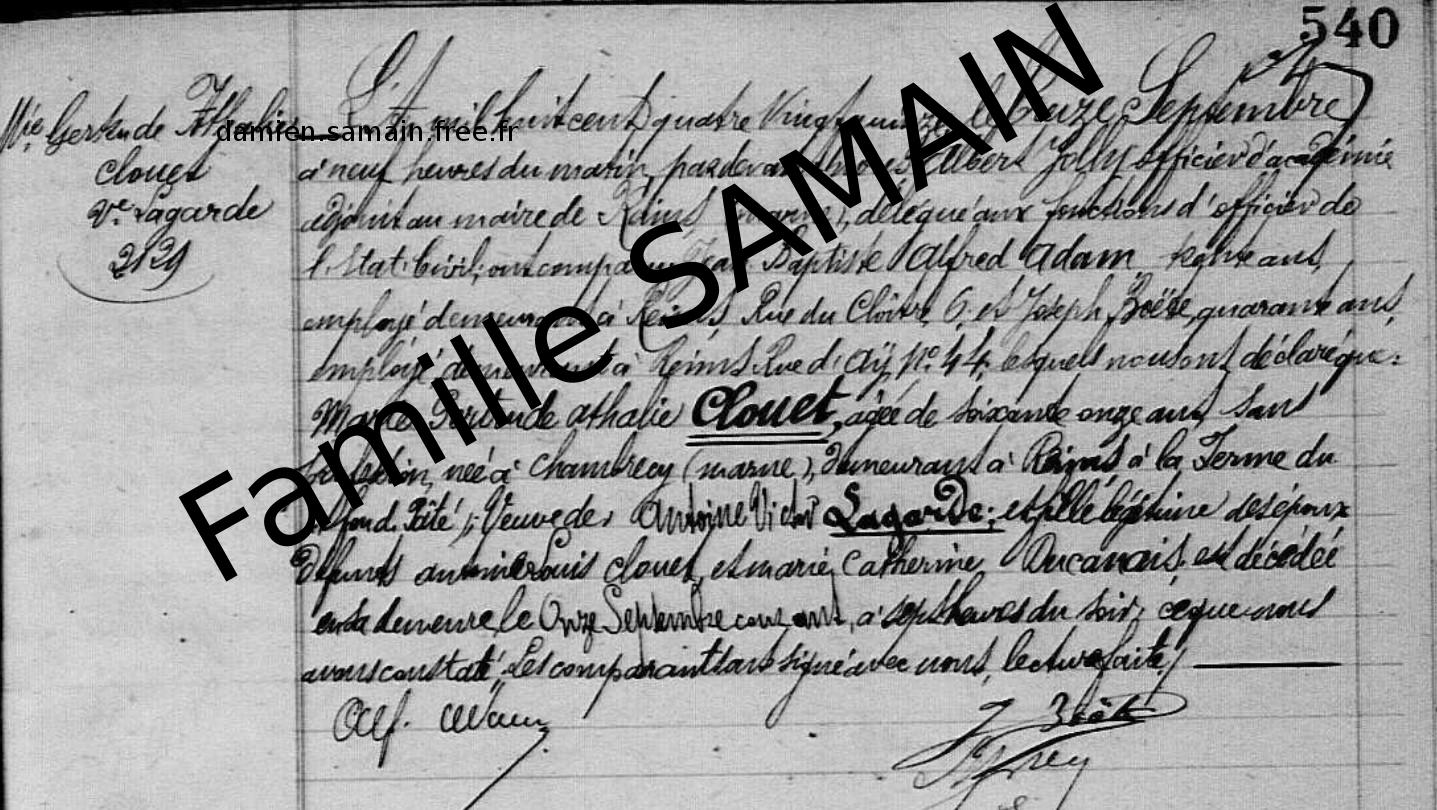 540
Mie Gertrude Athalie
Clouet
Ve Lagarde
2129
damien.samain.free.fr
Famille SAMAIN
L'An mil huit cent quatre Vingt le Septembre
à neuf heures du matin, pardevant nous Albert Jolly officier d'académie
adjoint au maire de Reims (marne), délégué aux fonctions d'officier de
l'État-Civil, ont comparu Jean Baptiste Alfred Adam ans,
employé demeurant à Reims, Rue du Cloître, 6, et Joseph quarante ans,
employé demeurant à Reims Rue d'Aÿ, No. 44, lesquels nous ont déclaré que:
Marie Gertrude Athalie Clouet, agée de soixante onze ans, sans
née à Chambrecy (marne), demeurant à Reims à la Ferme du
Veuve de Antoine Victor Lagarde; et fille légitime des époux
défunts Louis Clouet, et marie Catherine est décédée
en sa demeure, le Onze Septembre courant, à sept heures du soir, ce que nous
avons constaté. Les comparants ont signé avec nous, lecture faite./.
Alf. Adam
J.